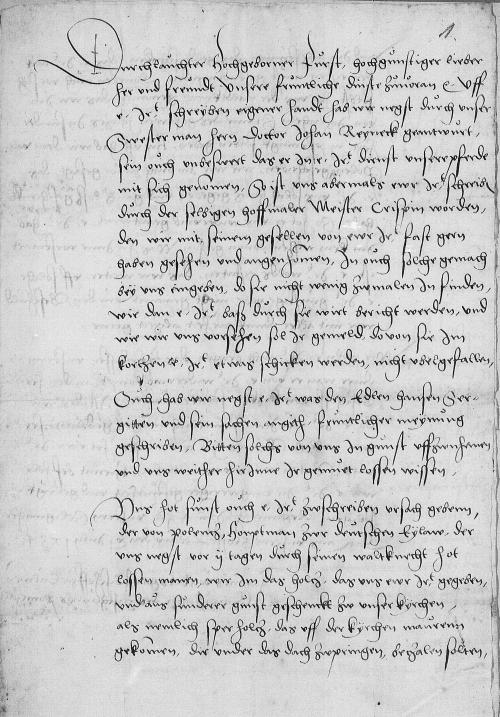 1.
Durchlauchter Hochgeborner Furst, hochgunstiger lieber
her und freundt Unsere fruntliche dinste zuuoran E Uff
e. Jrt schreyben eigener handt hab wir negst durch unser
Swester man hern Doctor Johan Reyneck geantwurt,
sein ouch unbeswert das er In e. Jrt dienst unsere pferde
mit sich genomen, So ist uns abermals ewr Jrt schreiben
durch der selbigen hoffmaler Meister Crispin worden,
den wir mit seinem gesellen von ewr Jrt fast gern
haben gesehen und angenhomen, In ouch solche gemach
bey uns eingeben, do sie nicht wenig zwmalen In finden,
wie dan e. Jrt baß durch sie wirt bericht werden, und
wie wir uns vorsehen sol Ir gemeld, dovon sie Im
kortzen e. Jrt etwas schicken werden, nicht ubelgefallen,
Ouch hab wir negst e. Jrt was den Edlen hansen
gitten und sein sachen angeth, fruntlicher meynung
geschriben, Bitten solchs von uns In gunst uffzunhemen
und uns weither hir Inne Ir gemuet lossen wissen,
Uns hot sunst ouch e. Jrt zwschreiben ursach gebern,
der von polentz, houptman zwr deutschen Eylaw, der
uns negst vor ij tagen durch seinen waltknecht hot
lossen manen, wir In das holtz, das uns ewr Jrt gegeben,
und aus sunderer gunst geschenckt zw unser kyrchen,
als nemlich sper holtz, das uff der kyrchen mauren
gekomen, die under das dach zwpringen, bezalen solten,